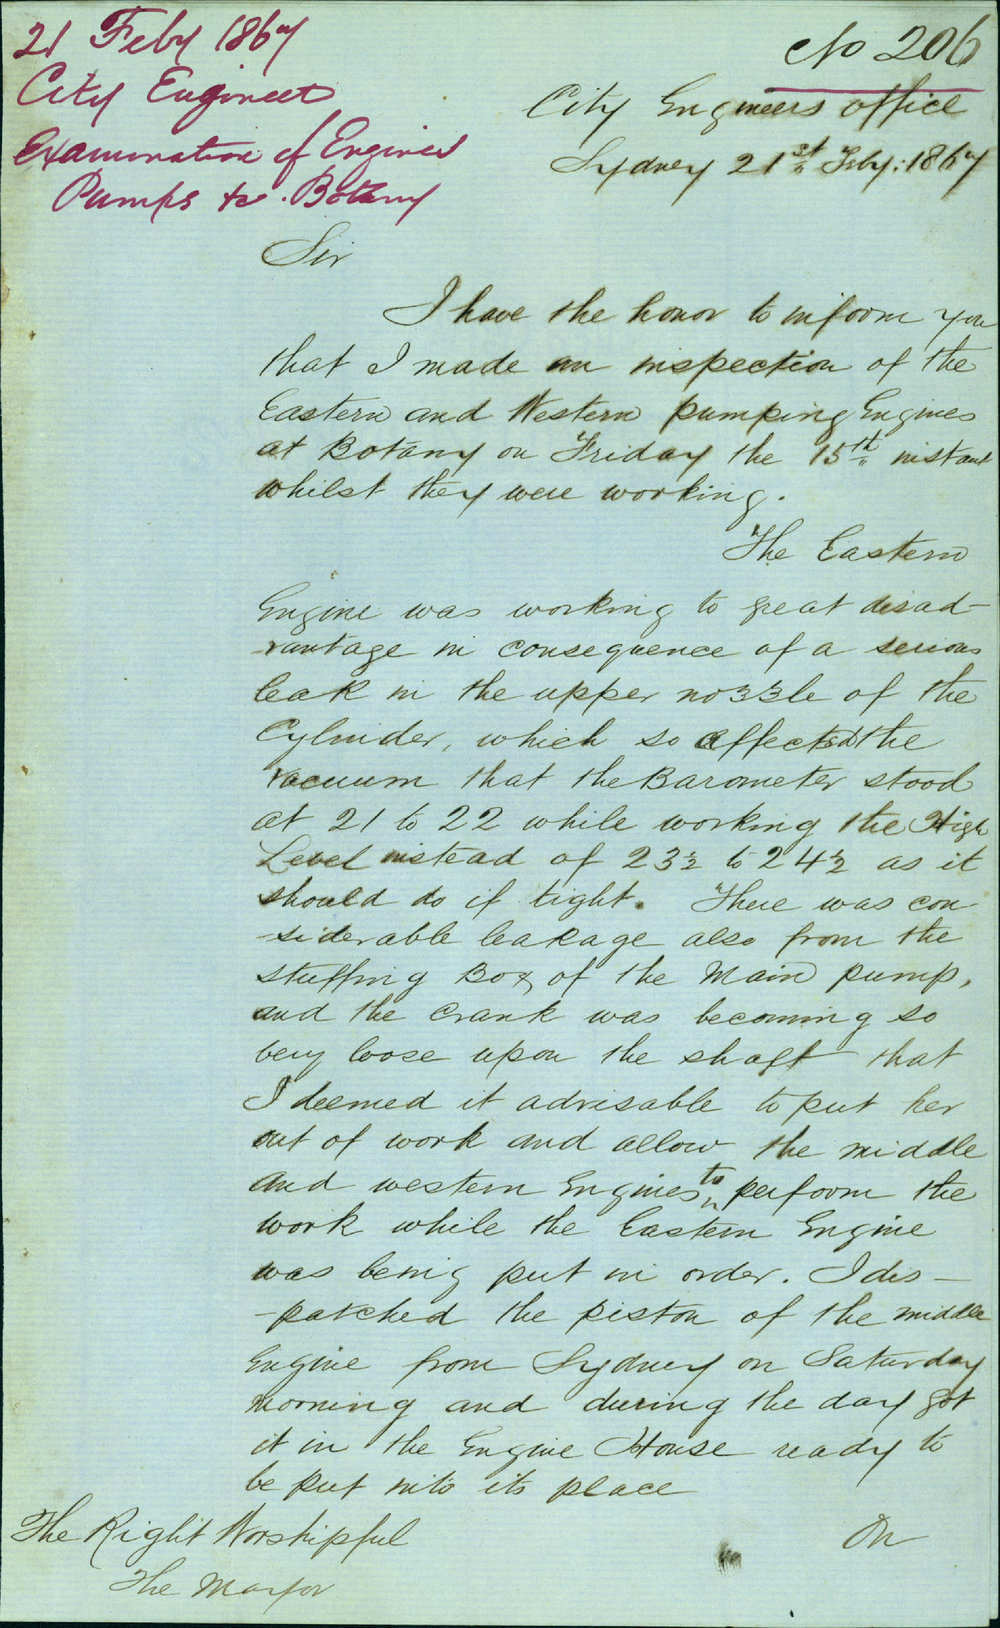 21 Feby 1867
City Engineer
Examination of Engines
Pumps &c. Botany
No 206
City Engineers office
Sydney 21st Feby: 1867
Sir
I have the honor to inform you
that I made an inspection of the
Eastern and Western pumping Engines
at Botany on Friday the 15th instant
whilst they were working.
The Eastern
Engine was working to great disad-
-vantage in consequence of a serious
leak in the upper nozzle of the
Cylinder, which so affected the
vacuum that the Barometer stood
at 21 to 22 while working the High
Level instead of 23½ to 24½ as it
should do if tight. There was con-
-siderable leakage also from the
stuffing Box of the Main pump,
and the crank was becoming so
very loose upon the shaft that
I deemed it advisable to put her
out of work and allow the middle
and western Engines to perform the
work while the Eastern Engine
was being put in order. I dis-
-patched the piston of the middle
Engine from Sydney on Saturday
morning and during the day got
it in the Engine House ready to
be put into its place
On
The Right Worshipful
The Mayor